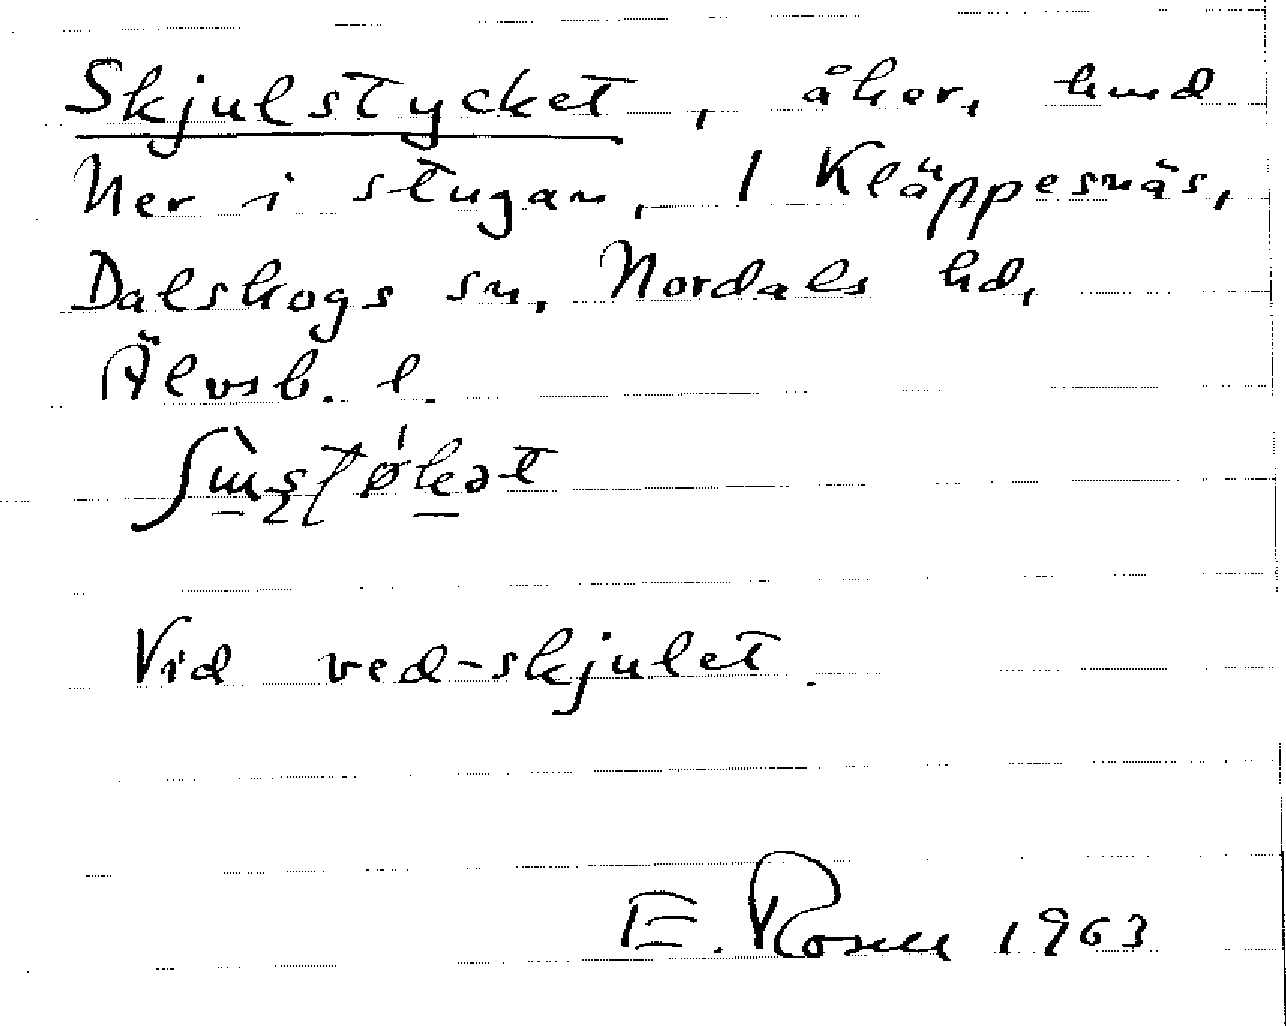 Skjulstycket, åker, hmd
Ner i stugan, 1 Kläppesnäs,
Dalskogs sn, Nordals hd,
Älvsb. l.
Vid ved-skjulet.
E. Rosell 1963